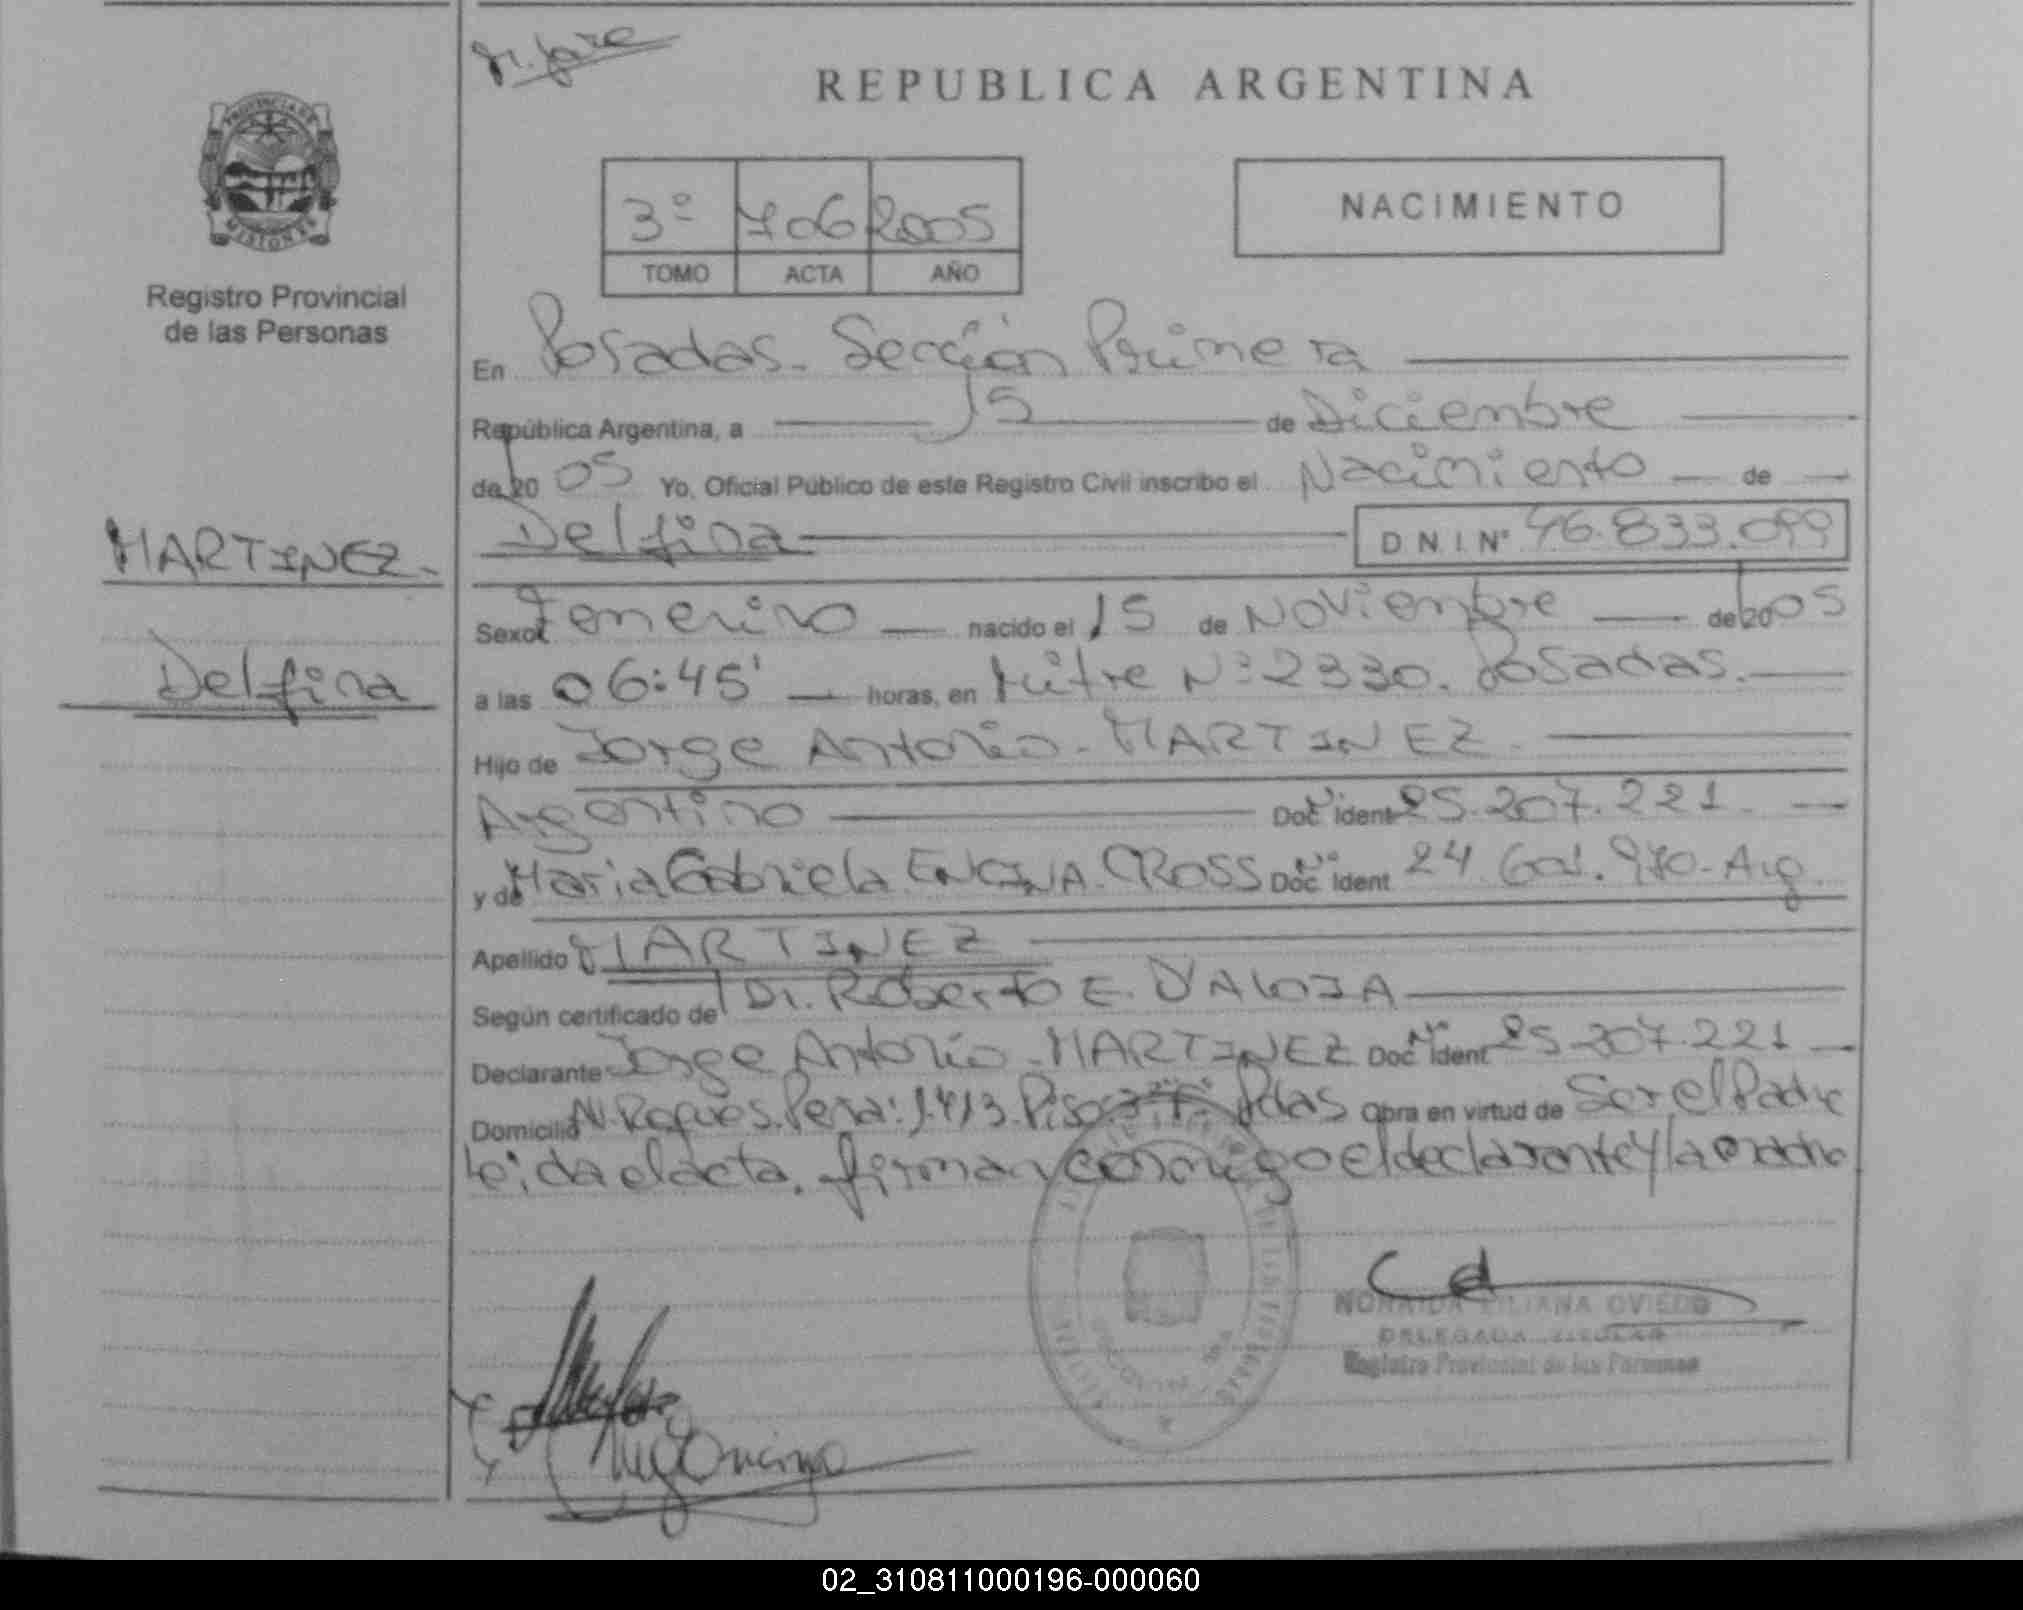 REPUBLICA ARGENTINA
PROVINCIA DE
MISIONES
Registro Provincial
de las Personas
NACIMIENTO
3º 706 2005
TOMO ACTA AÑO
En Posadas. Sección Primera
República Argentina, a 15 de Diciembre
de 20 05 Yo, Oficial Público de este Registro Civil inscribo el Nacimiento de
Delfina D N I Nº 46.833.099
MARTINEZ.
Delfina
Sexo Femenino nacido el 15 de Noviembre de 20 05
a las 06:45' horas, en Mitre Nº 2330. Posadas.
Hijo de Jorge Antonio. MARTINEZ.
Argentino Doc Nº Ident 25.207.221.
y de Maria Gabriela ENCINA CROSS Doc Nº Ident 24.601.970-Arg.
Apellido MARTINEZ
Según certificado de Dr. Roberto E. DALOIA
Declarante Jorge Antonio. MARTINEZ Doc Nº Ident 25.207.221
Domicilio Peña: 1413. Piso Pdas Obra en virtud de Ser el Padre
Leida el acta, firman conmigo el declarante y la madre
NORAIDA LILIANA OVIEDO
DELEGADA TITULAR
Registro Provincial de las Personas
02_310811000196-000060